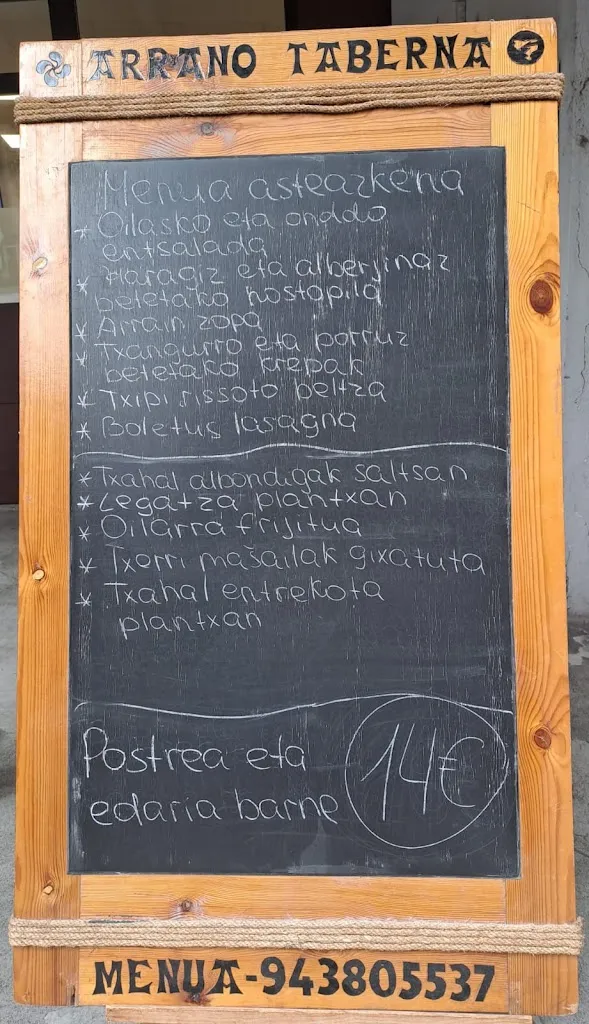 ARRANO TABERNA
Menua asteazkena
* Oilasko eta onddo
entsalada
* Haragiz eta alberjinaz
betetako hostopila
* Arrain zopa
* Txangurro eta porruz
betetako krepak
* Txipi rissoto beltza
* Boletus lasagna
* Txahal albondigak saltsan
* Legatza plantxan
* Oilarra frijitua
* Txerri mašailak gixatuta
* Txahal entrekota
plantxan
Postrea eta
edaria barne
14€
MENUA-943805537